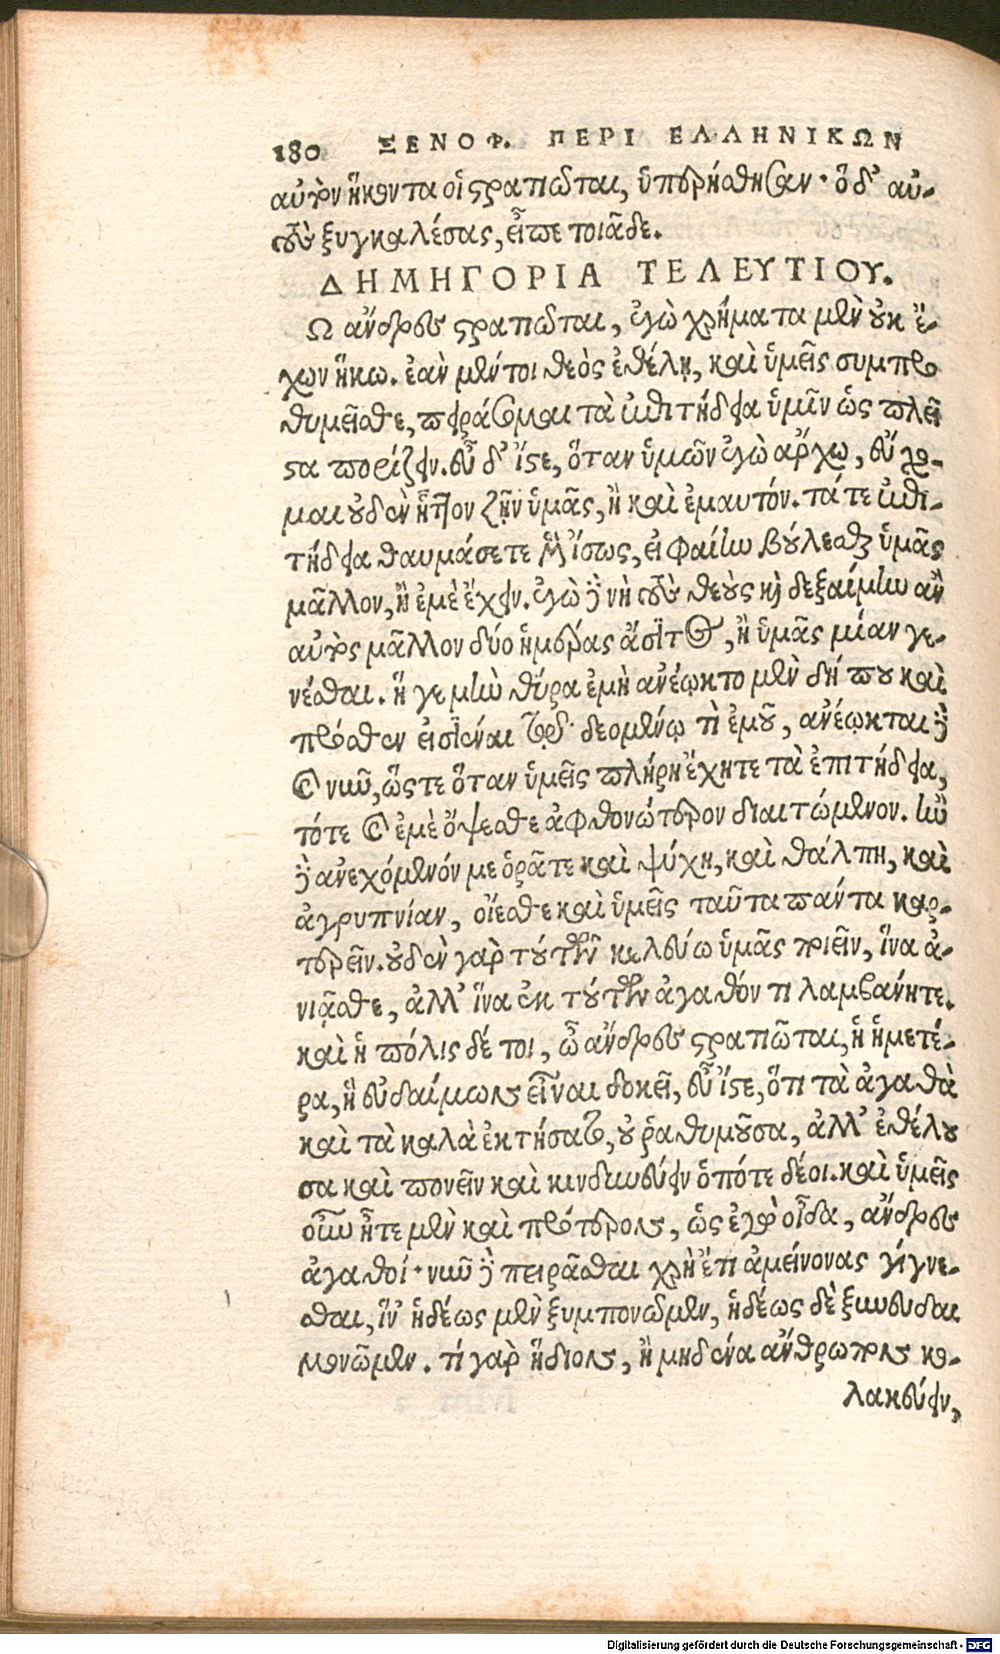 180 ΞΕΝΟΦ. ΠΕΡΙ ΕΛΛΗΝΙΚΩΝ
αὐτὸν ἥκοντα οἱ στρατιῶται, ὑπερήσθησαν· ὁ δ' αὐ-
τοὺς ξυγκαλέσας, εἶπε τοιάδε.
ΔΗΜΗΓΟΡΙΑ ΤΕΛΕΥΤΙΟΥ.
Ω ἄνδρες στρατιῶται, ἐγὼ χρήματα μὲν οὐκ ἔ-
χων ἥκω. ἐὰν μέντοι θεὸς ἐθέλῃ, καὶ ὑμεῖς συμπρο
θυμεῖσθε, πειράσομαι τὰ ἐπιτήδεια ὑμῖν ὡς πλεῖ
στα πορίζειν. εὖ δ' ἴστε, ὅταν ὑμῶν ἐγὼ ἄρχω, εὔχο-
μαι οὐδὲν ἧττον ζῆν ὑμᾶς, ἢ καὶ ἐμαυτόν. τά τε ἐπι-
τήδεια θαυμάσετε μὲν ἴσως, εἰ φαίην βούλεσθαι ὑμᾶς
μᾶλλον, ἢ ἐμὲ ἔχειν. ἐγὼ δὲ νὴ τοὺς θεοὺς καὶ δεξαίμην ἂν
αὐτὸς μᾶλλον δύο ἡμέρας ἄσιτος, ἢ ὑμᾶς μίαν γε-
νέσθαι. ἥ γε μὴν θύρα ἐμὴ ἀνέῳκτο μὲν δή που καὶ
πρόσθεν εἰσιέναι τῷ δεομένῳ τὶ ἐμοῦ, ἀνέῳκται δὲ
καὶ νῦν, ὥστε ὅταν ὑμεῖς πλήρη ἔχητε τὰ ἐπιτήδεια,
τότε καὶ ἐμὲ ὄψεσθε ἀφθονώτερον διαιτώμενον. ἢν
δὲ ἀνεχόμενόν με ὁρᾶτε καὶ ψύχη, καὶ θάλπη, καὶ
ἀγρυπνίαν, οἴεσθε καὶ ὑμεῖς ταῦτα πάντα καρ-
τερεῖν. οὐδὲν γὰρ τούτων κελεύω ὑμᾶς ποιεῖν, ἵνα ἀ-
νιᾶσθε, ἀλλ' ἵνα ἐκ τούτων ἀγαθόν τι λαμβάνητε.
καὶ ἡ πόλις δέ τοι, ὦ ἄνδρες στρατιῶται, ἡ ἡμετέ-
ρα, ἣ εὐδαίμων εἶναι δοκεῖ, εὖ ἴστε, ὅτι τὰ ἀγαθὰ
καὶ τὰ καλὰ ἐκτήσατο, οὐ ῥαθυμοῦσα, ἀλλ' ἐθέλου
σα καὶ πονεῖν καὶ κινδυνεύειν ὁπότε δέοι. καὶ ὑμεῖς
οὖν ἦτε μὲν καὶ πρότερον, ὡς ἐγὼ οἶδα, ἄνδρες
ἀγαθοί· νῦν δὲ πειρᾶσθαι χρὴ ἔτι ἀμείνονας γίγνε-
σθαι, ἵν' ἡδέως μὲν ξυμπονῶμεν, ἡδέως δὲ ξυνευδαι
μονῶμεν. τί γὰρ ἥδιον, ἢ μηδένα ἀνθρώπων κο-
λακεύειν,
Digitalisierung gefördert durch die Deutsche Forschungsgemeinschaft - DFG